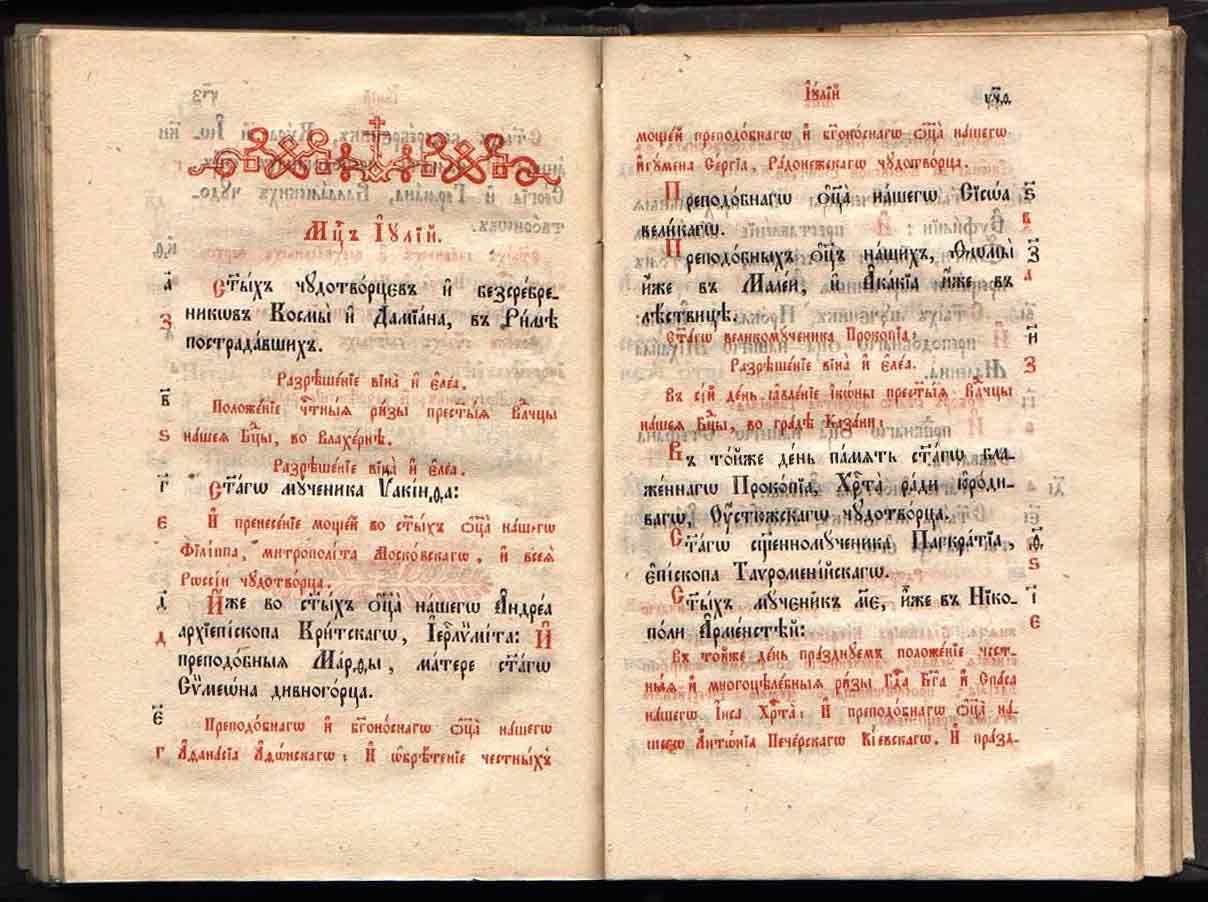 Мц҃ъ І҆ꙋ́лїй.
а҃
Ст҃ы́хъ чꙋдотво́рцєвъ и҆ безсре́бре-
з
никѡвъ Космы̀ и҆ Дамїа́на, въ Ри́мѣ
пострада́вшихъ.
Разрѣше́нїе вїна̀ и҆ є҆ле́а.
в҃
Положе́нїе чⷭ҇тны́ѧ ри́зы прест҃ы́ѧ влⷣчцы
ѕ
на́шеѧ бцⷣы, во Влахе́рнѣ.
Разрѣше́нїе вїна̀ и҆ є҆ле́а.
г҃
Ст҃а́гѡ мꙋ́ченика Ѵ҆акі́нѳа:
є
И҆ пренесе́нїе моще́й во ст҃ы́хъ ѻ҆ц҃а̀ на́шегѡ
Фїлі́ппа, митрополі́та Моско́вскагѡ, и҆ всеѧ̀
Рѡссі́и чꙋдотво́рца.
д҃
И҆́же во ст҃ы́хъ ѻ҆ц҃а̀ на́шегѡ А҆ндре́а
д
архїепі́скопа Кри́тскагѡ, І҆ерⷭ҇лѷмі́та: И҆
преподо́бныѧ Ма́рѳы, ма́тере ст҃а́гѡ
Сѷмеѡ́на дивного́рца.
є҃
Преподо́бнагѡ и҆ бг҃оно́снагѡ ѻ҆ц҃а̀ на́шегѡ
г
А҆ѳана́сїа А҆ѳѡ́нскагѡ: И҆ ѡ҆брѣ́тенїе че́стныхъ
І҆ꙋ́лїй
уч҃ѳ.
моще́й преподо́бнагѡ и҆ бг҃оно́снагѡ ѻ҆ц҃а̀ на́шегѡ
и҆гꙋ́мена Се́ргїа, Ра́донежскагѡ чꙋдотво́рца.
Преподо́бнагѡ ѻ҆ц҃а̀ на́шегѡ Сїсѡ́а
ѕ҃
вели́кагѡ.
в
Преподо́бныхъ ѻ҆тц҃ъ на́шихъ, Ѳѡмы̀
з҃
и҆́же въ Мале́и, и҆ А҆ка́кїа и҆́же въ
а
лѣ́ствицѣ.
Ст҃а́гѡ великомꙋ́ченика Проко́пїа:
и҃
Разрѣше́нїе вїна̀ и҆ є҆ле́а.
з
Въ сі́й де́нь, ꙗ҆вле́нїе і҆кѡ́ны прест҃ы́ѧ влⷣчцы
на́шеѧ бцⷣы, во гра́дѣ Каза́ни:
Въ то́йже де́нь па́мѧть ст҃а́гѡ бла-
же́ннагѡ Проко́пїа, Хрⷭ҇та̀ ра́ди ю҆ро́ди-
вагѡ, Оу҆́стюжскагѡ чꙋдотво́рца.
Ст҃а́гѡ сщ҃енномꙋ́ченика Пагкра́тїа,
ѳ҃
є҆пі́скопа Тауромені́йскагѡ.
ѕ
Ст҃ы́хъ мꙋ́чєникъ м҃е, и҆̀же въ Нїко-
і҃
по́ли А҆рме́нстѣй:
є
Въ то́йже де́нь пра́зднꙋемъ положе́нїе чест-
ны́ѧ и҆ многоцѣле́бныѧ ри́зы гдⷭ҇а бг҃а и҆ сп҃са
на́шегѡ і҆и҃са хрⷭ҇та̀: И҆ преподо́бнагѡ ѻ҆ц҃а̀ на́-
шегѡ А҆нтѡ́нїа Пече́рскагѡ Кі́евскагѡ. И҆ пра́зд-